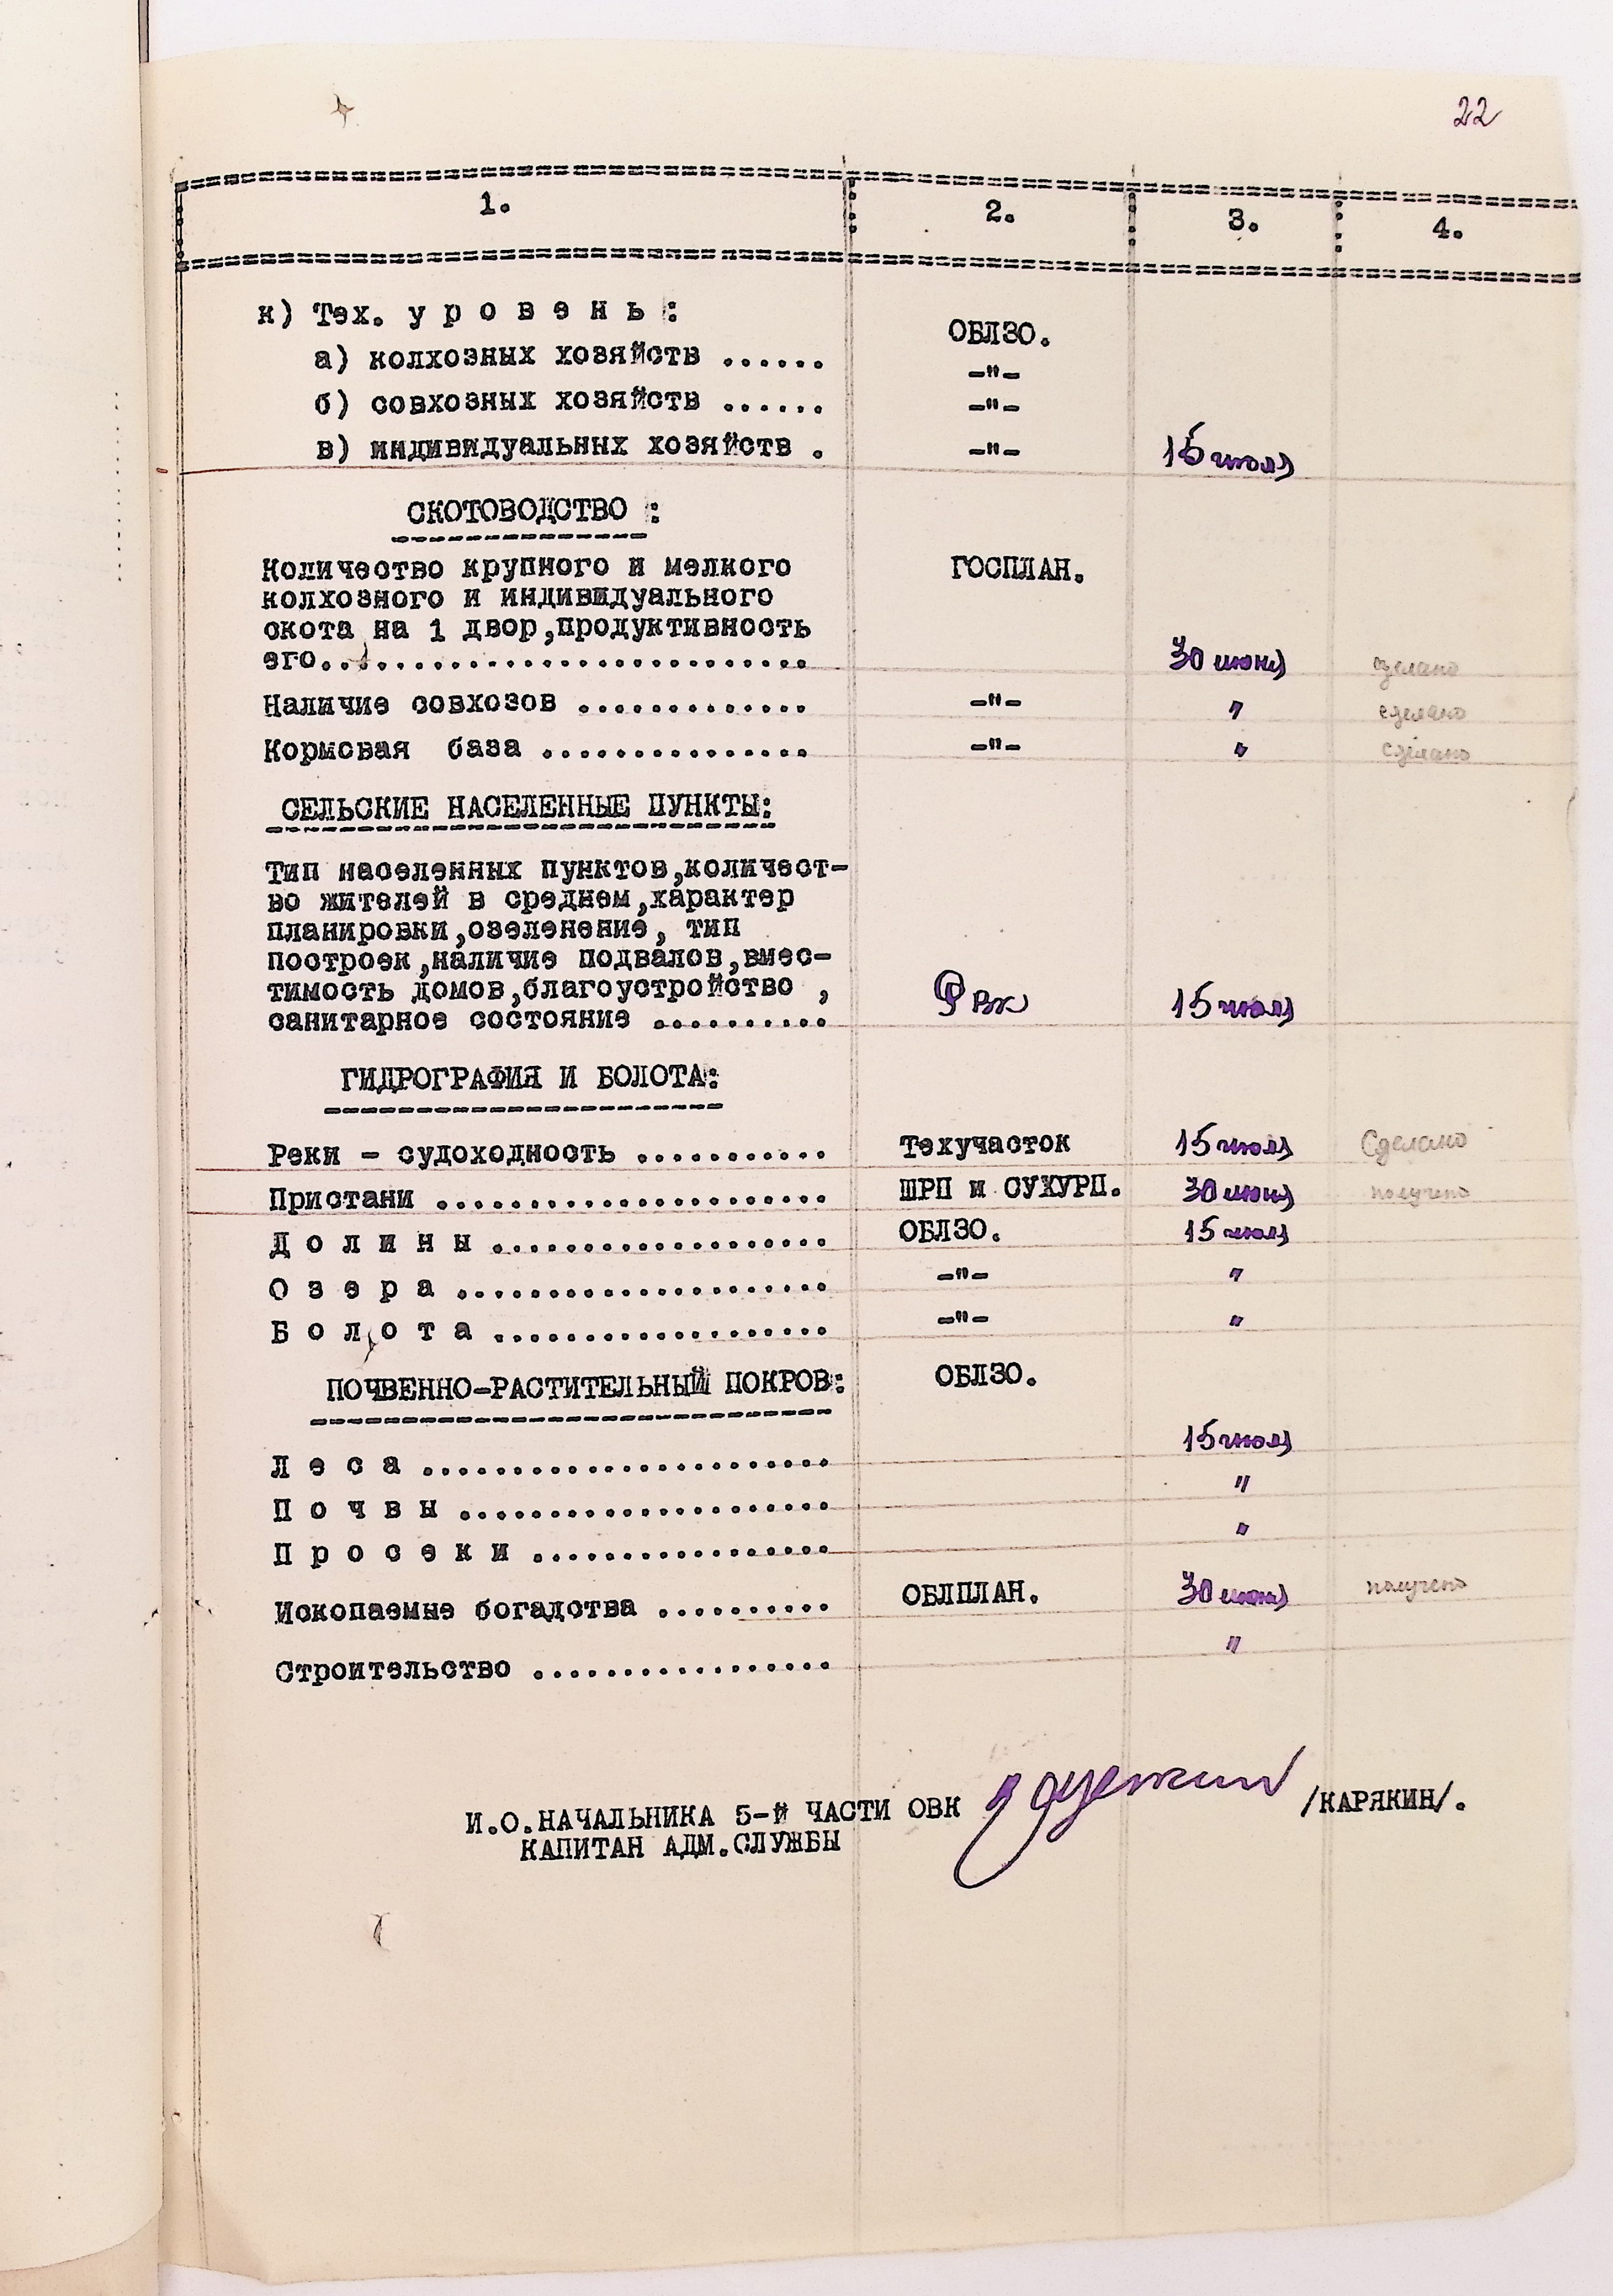 22
1. 2. 3. 4.
к) Тех. у р о в е н ь : ОБЛЗО.
а) колхозных хозяйств ...... -"-
б) совхозных хозяйств ...... -"-
в) индивидуальных хозяйств . -"- 15 июля
СКОТОВОДСТВО :
Количество крупного и мелкого ГОСПЛАН.
колхозного и индивидуального
скота на 1 двор,продуктивность
его........................... 30 июня сделано
Наличие совхозов ............. -"- " сделано
Кормовая база ............... -"- " сделано
СЕЛЬСКИЕ НАСЕЛЕННЫЕ ПУНКТЫ:
Тип населенных пунктов,количест-
во жителей в среднем,характер
планировки,озеленение, тип
построек,наличие подвалов,вмес-
тимость домов,благоустройство ,
санитарное состояние .......... РВК 15 июля
ГИДРОГРАФИЯ И БОЛОТА:
Реки - судоходность ........... Техучасток 15 июля Сделано
Пристани ...................... ШРП и СУХУРП. 30 июня получено
Д о л и н ы ................... ОБЛЗО. 15 июля
О з е р а ..................... -"- "
Б о л о т а ................... -"- "
ПОЧВЕННО-РАСТИТЕЛЬНЫЙ ПОКРОВ: ОБЛЗО.
Л е с а ....................... 15 июля
П о ч в ы ..................... "
П р о с е к и ................. "
Ископаемые богадства .......... ОБЛПЛАН. 30 июня получено
Строительство ................. "
И.О.НАЧАЛЬНИКА 5-й ЧАСТИ ОВК /КАРЯКИН/.
КАПИТАН АДМ.СЛУЖБЫ